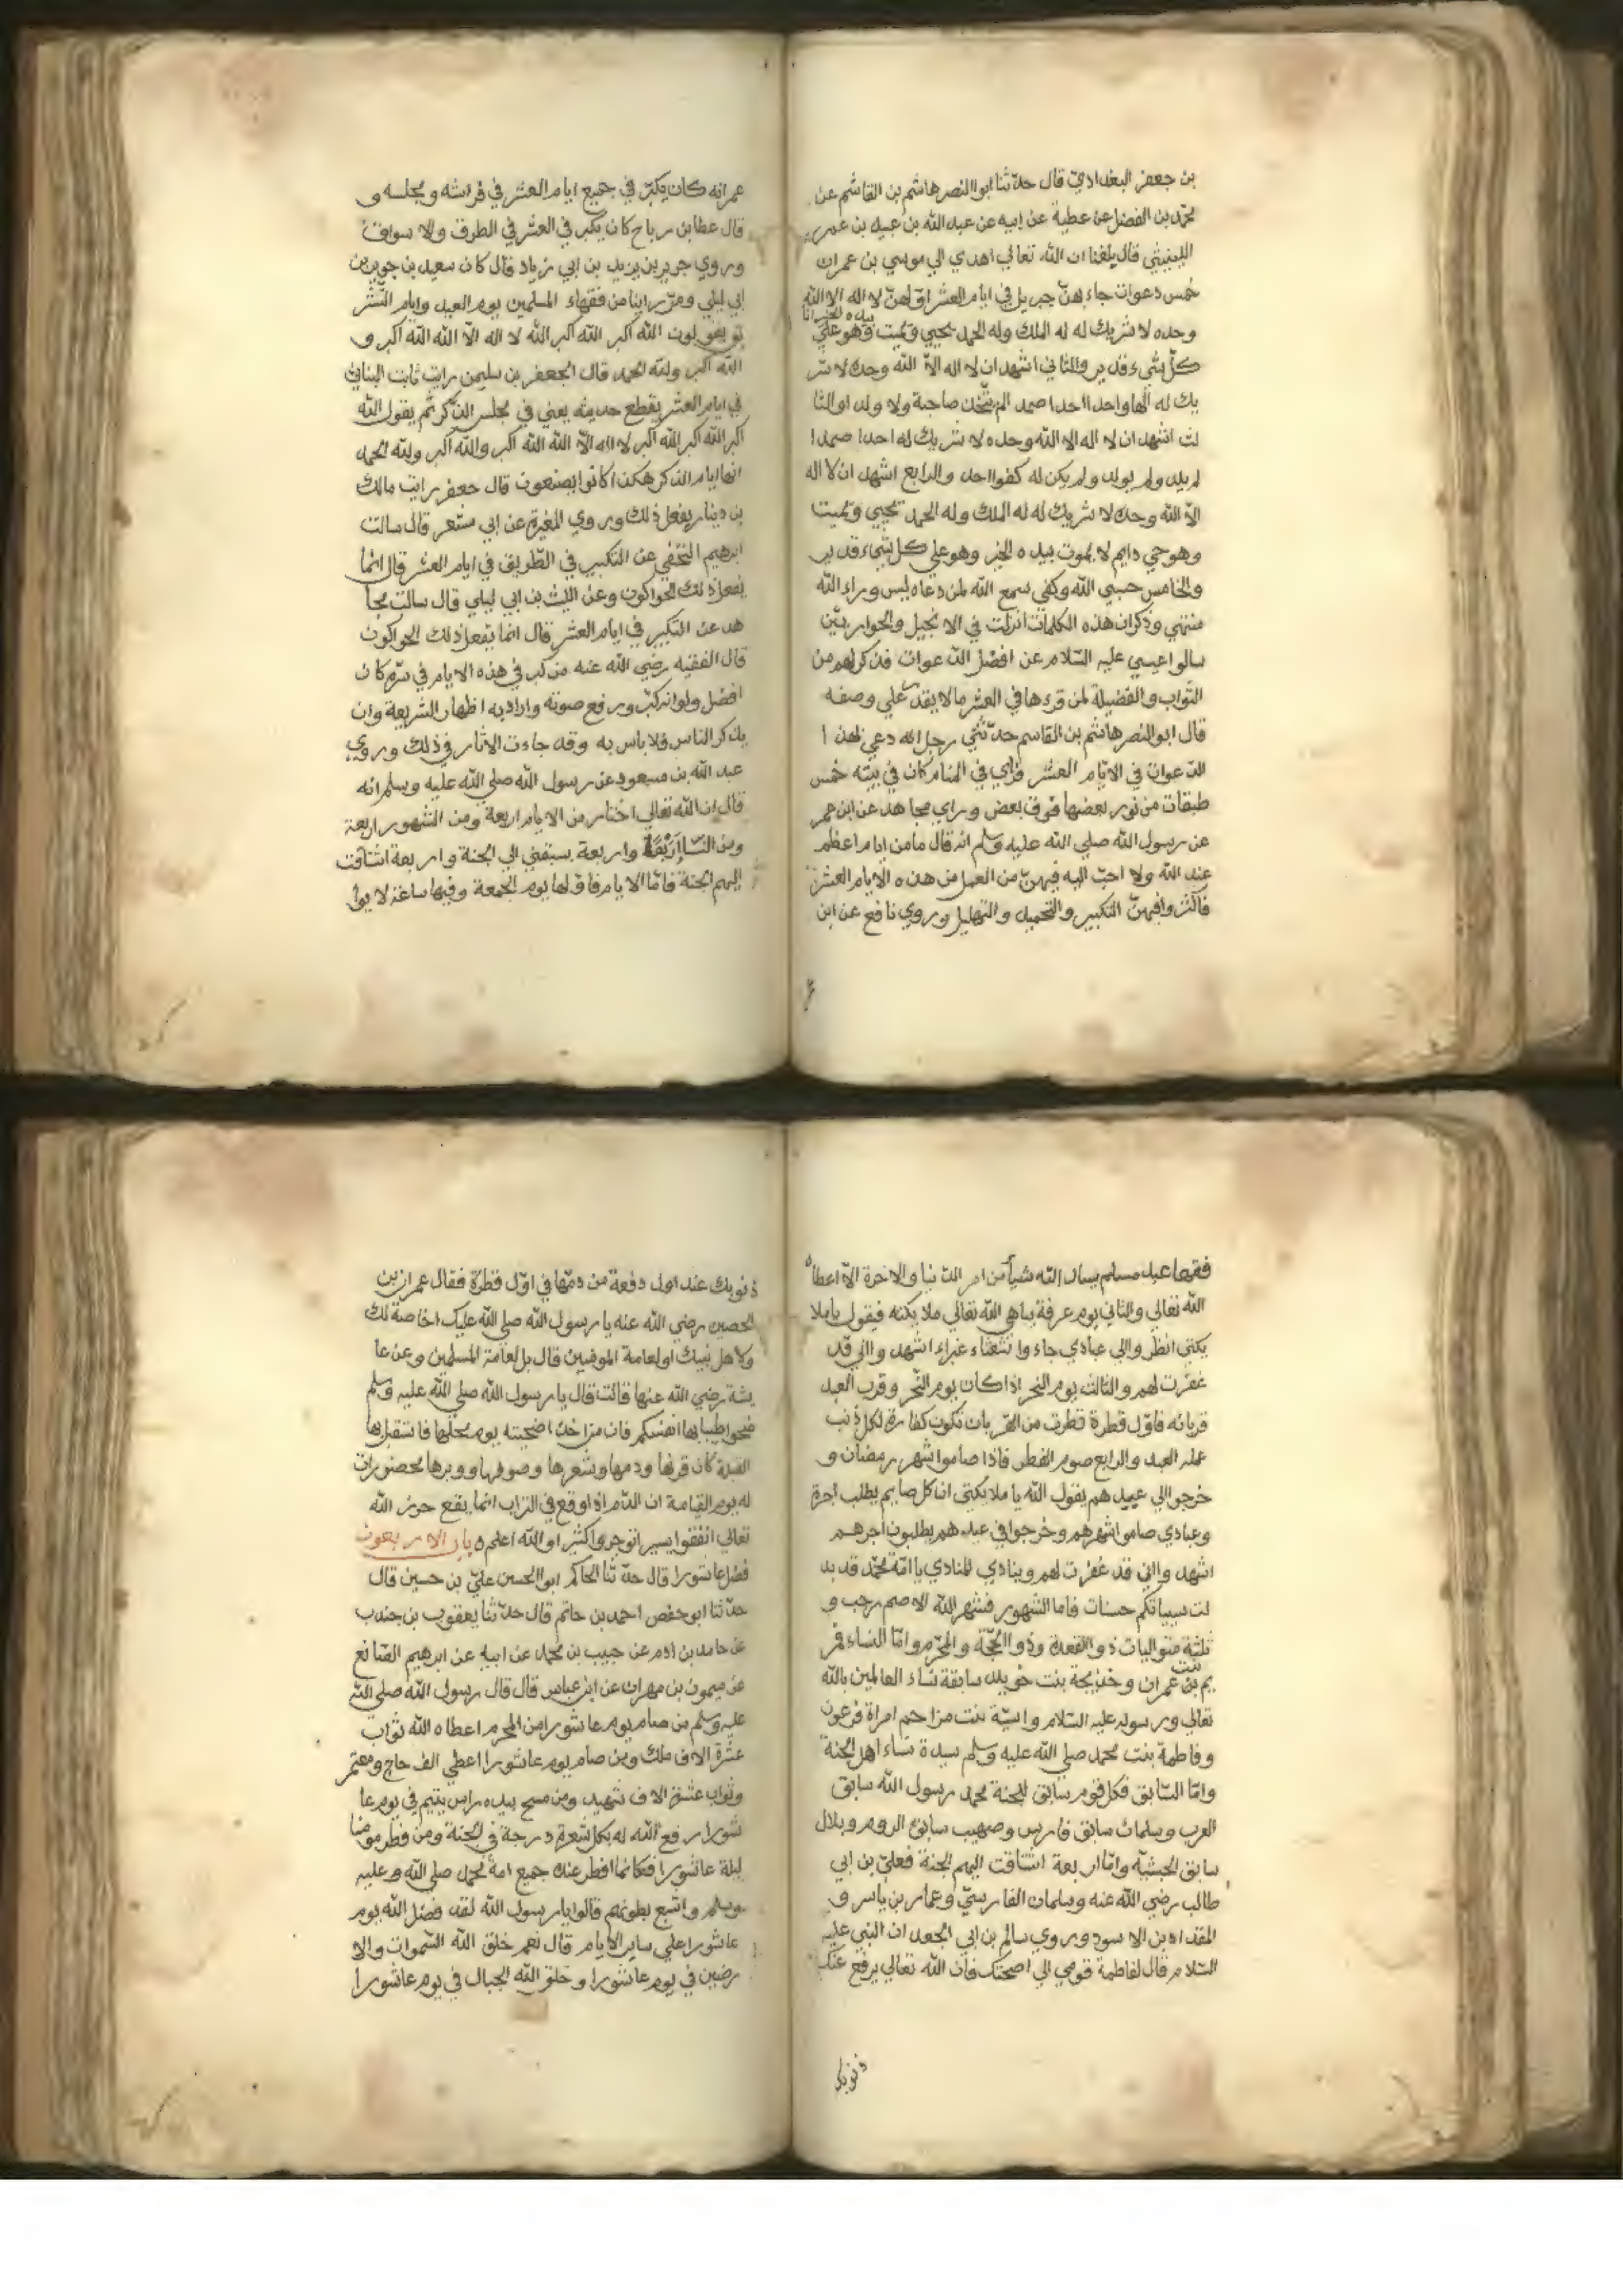 بن جعفر البغدادي قال حدثنا ابوا النصر هاشم بن القاشم عن
محمد بن الفضل عن عطية عن ابيه عن عبد الله بن عبيد بن عمير
الليثي قال بلغنا ان الله تعالي اهدي الي موسي بن عمران
خمس دعوات جاء بهنّ جبريل في ايام العشر اوّلهنّ لا اله الا الله
وحده لا شريك له له الملك وله الحمد يحيي ويميت بيده الخير وهو علي
كلّ شيء قدير والثاني اشهد ان لا اله الّا الله وحده لا شر
يك له الها واحدا احدا صمدا لم يتّخذ صاحبة ولا ولدا والثا
لث اشهد ان لا اله الا الله وحده لا شريك له احدا صمدا
لم يلد ولم يولد ولم يكن له كفوا احد والرابع اشهد ان لا اله
الّا الله وحده لا شريك له له الملك وله الحمد يحيي ويميت
وهو حي دايم لا يموت بيده الخير وهو علي كل شيء قدير
والخامس حسبي الله وكفي سمع الله لمن دعاه ليس وراء الله
منتهي وذكر ان هذه الكلمات انزلت في الانجيل والحواريّين
سالوا عيسي عليه السّلام عن افضل الدعوات فذكر لهم من
الثّواب والفضيلة لمن قرءها في العشر ما لا يقدر علي وصفه
قال ابو النصر هاشم بن القاسم حدّثني رجل انه دعي بهذا
الدعوات في الايّام العشر فراي في المنام كان في بيته خمس
طبقات من نور بعضها فوق بعض وراي مجاهد عن ابن عمر
عن رسول الله صلي الله عليه وسلم انه قال ما من ايام اعظم
عند الله ولا احبّ اليه فيهنّ من العمل من هذه الايام العشر
فاكثروا فيهنّ التكبير والتحميد والتهليل وروي نافع عن ابن
عمر انه كان يكبّر في جميع ايام العشر في فراشه ومجلسه و
قال عطا بن رباح كان يكبر في العشر في الطرق والاسواق
وروي جرير بن يزيد بن ابي زياد قال كان سعيد بن جبير بن
ابي ليلي ومن راينا من فقهاء المسلمين يوم العيد وايام التشر
يق يقولون الله اكبر الله اكبر الله لا اله الّا الله الله اكبر و
الله اكبر ولله الحمد قال الجعفر بن سليمن رايت ثابت البناني
في ايام العشر يقطع حديثه يعني في مجلس الذّكر ثم يقول الله
اكبر الله اكبر الله اكبر لا اله الّا الله الله اكبر والله اكبر ولله الحمد
انها ايام الذكر هكذا كانوا يصنعون قال جعفر رايت مالك
بن دينار يفعل ذلك وروي المغيرة عن ابي مسعر قال سالت
ابرهيم النخفي عن التكبير في الطّريق في ايام العشر قال انّما
يفعل ذلك الحواكون وعن الليث بن ابي ليلي قال سالت مجا
هد عن التكبير في ايام العشر قال انما يفعل ذلك الحواكون
قال الفقيه رضي الله عنه من كبر في هذه الايام في سرّ كان
افضل ولو انه كبّر ورفع صوته واراد به اظهار الشريعة وان
يذكر الناس فلا باس به وقد جاءت الاثار في ذلك وروي
عبد الله بن مسعود عن رسول الله صلي الله عليه وسلم انه
قال ان الله تعالي اختار من الايام اربعة ومن الشهور اربعة
ومن النسّا اربعة واربعة يسبقني الي الجنة واربعة اشتاقت
اليهم الجنة فامّا الايام فاوّلها يوم الجمعة وفيها ساعة لا يوا
فقها عبد مسلم يسال الله شيأ من امر الدنيا والاخرة الّا اعطاه
الله تعالي والثاني يوم عرفة يباهي الله تعالي ملايكته فيقول يا ملا
يكتي انظروا الي عبادي جاءوا شعثاء غبراء اشهدوا اني قد
غفرت لهم والثالث يوم النحر اذا كان يوم النّحر وقرب العبد
قربانه فاوّل قطرة قطرت من القربان تكون كفارة لكل ذنب
عمله العبد والرابع صوم الفطر فاذا صاموا شهر رمضان و
خرجوا الي عيدهم يقول الله يا ملايكتي ان كل صايم يطلب اجرة
وعبادي صاموا شهرهم وخرجوا في عيدهم يطلبون اجرهم
اشهدوا اني قد غفرت لهم وينادي المنادي يا امّة محمّد قد بد
لت سيياتكم حسنات فاما الشهور فشهر الله الاصم رجب و
ثلثة متواليات ذو القعدة وذو الحجّة والمحرّم وامّا النساء فمر
يم بنت عمران وخديجة بنت خويلد سابقة نساء العالمين بالله
تعالي ورسوله عليه السّلام واسيّة بنت مزاحم امراة فرعون
وفاطمة بنت محمد صلي الله عليه وسلم سيدة نساء اهل الجنة
وامّا السّابق فكل قوم سابق للجنة محمد رسول الله سابق
العرب وسلمان سابق فارس وصهيب سابق الروم وبلال
سابق الحبشة وامّا اربعة اشتاقت اليهم الجنة فعليّ بن ابي
طالب رضي الله عنه وسلمان الفارسيّ وعمار بن ياسر و
المقداد بن الاسود وروي سالم بن ابي الجعد ان النبي عليه
السّلام قال لفاطمة قومي الي اضحيّتك فان الله تعالي يرفع عنك
ذنوبك
ذنوبك عند اول دفعة من دمّها في اوّل قطرة فقال عمران بن
الحصين رضي الله عنه يا رسول الله صلي الله عليك اخاصة لك
ولاهل بيتك او لعامة المومنين قال بل لعامة المسلمين وعن عا
يشة رضي الله عنها قالت قال يا رسول الله صلي الله عليه وسلم
ضحوا طيبا بها انفسكم فان من اخذ اضحيته يوم محلها فاستقبل بها
القبلة كان قرنها ودمها وشعرها وصوفها ووبرها محصنورات
له يوم القيامة ان الدّم اذا وقع في التراب انما يقع حرز الله
تعالي انفقوا يسيرا توجروا كثيرا والله اعلم باب الاربعون
فضل عاشورا قال حدّثنا الحاكم ابو الحسن عليّ بن حسين قال
حدّثنا ابو حفص احمد بن حاتم قال حدّثنا يعقوب بن جندب
عن حامد بن ادم عن حبيب بن محمد عن ابيه عن ابرهيم الصّانع
عن ميمون بن مهران عن ابن عباس قال قال رسول الله صلي الله
عليه وسلم من صام يوم عاشورا من المحرم اعطاه الله ثواب
عشرة الاف ملك ومن صام يوم عاشورا اعطي الف حاج ومعتمر
وثواب عشرة الاف شهيد ومن مسح بيده راس يتيم في يوم عا
شورا رفع الله له بكل شعرة درجة في الجنة ومن فطر مومنا
ليلة عاشورا فكانما افطر عنده جميع امة محمد صلي الله وعليه
وسلم واشبع بطونهم قالوا يا رسول الله لقد فضل الله يوم
عاشورا علي ساير الايام قال نعم خلق الله السّموات والا
رضين في يوم عاشورا وخلق الله الجبال في يوم عاشورا